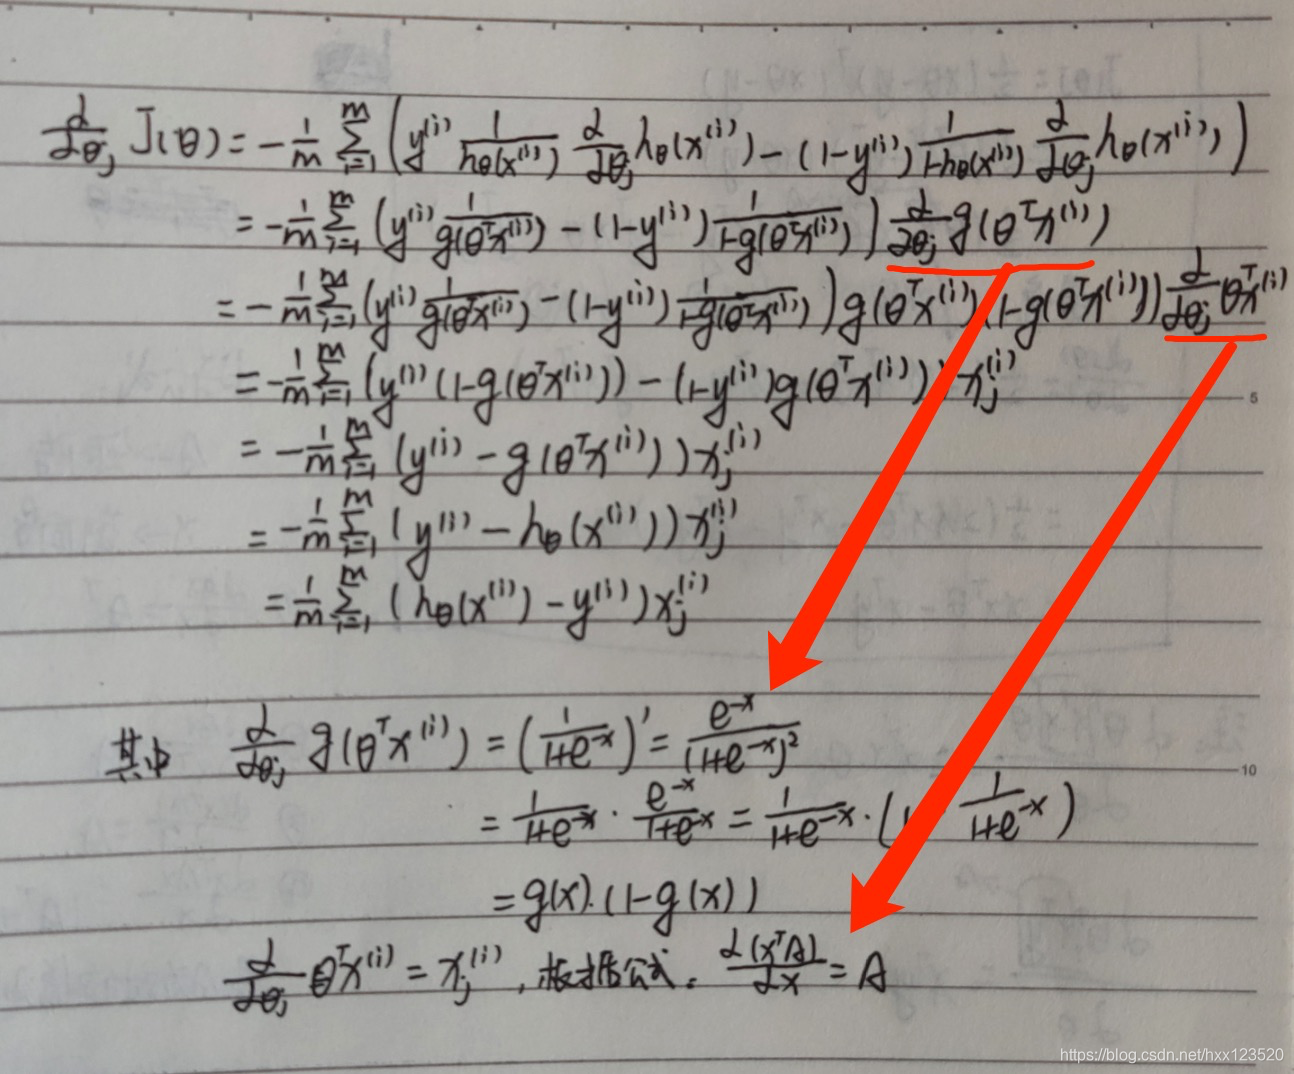 ∂/∂θj J(θ) = -1/m Σ_{i=1}^{m} ( y^(i) 1/hθ(x^(i)) ∂/∂θj hθ(x^(i)) - (1-y^(i)) 1/(1-hθ(x^(i))) ∂/∂θj hθ(x^(i)) )
= -1/m Σ_{i=1}^{m} ( y^(i) 1/g(θ^T x^(i)) - (1-y^(i)) 1/(1-g(θ^T x^(i))) ) ∂/∂θj g(θ^T x^(i))
= -1/m Σ_{i=1}^{m} ( y^(i) 1/g(θ^T x^(i)) - (1-y^(i)) 1/(1-g(θ^T x^(i))) ) g(θ^T x^(i)) (1-g(θ^T x^(i))) ∂/∂θj θ^T x^(i)
= -1/m Σ_{i=1}^{m} ( y^(i) (1-g(θ^T x^(i))) - (1-y^(i)) g(θ^T x^(i)) ) xj^(i)
5
= -1/m Σ_{i=1}^{m} ( y^(i) - g(θ^T x^(i)) ) xj^(i)
= -1/m Σ_{i=1}^{m} ( y^(i) - hθ(x^(i)) ) xj^(i)
= 1/m Σ_{i=1}^{m} ( hθ(x^(i)) - y^(i) ) xj^(i)
其中 ∂/∂θj g(θ^T x^(i)) = ( 1/(1+e^-x) )' = e^-x/(1+e^-x)^2
10
= 1/(1+e^-x) · e^-x/(1+e^-x) = 1/(1+e^-x) · (1 - 1/(1+e^-x))
= g(x)·(1-g(x))
∂/∂θj θ^T x^(i) = xj^(i) , 根据公式: ∂(x^T A)/∂x = A
https://blog.csdn.net/hxx123520